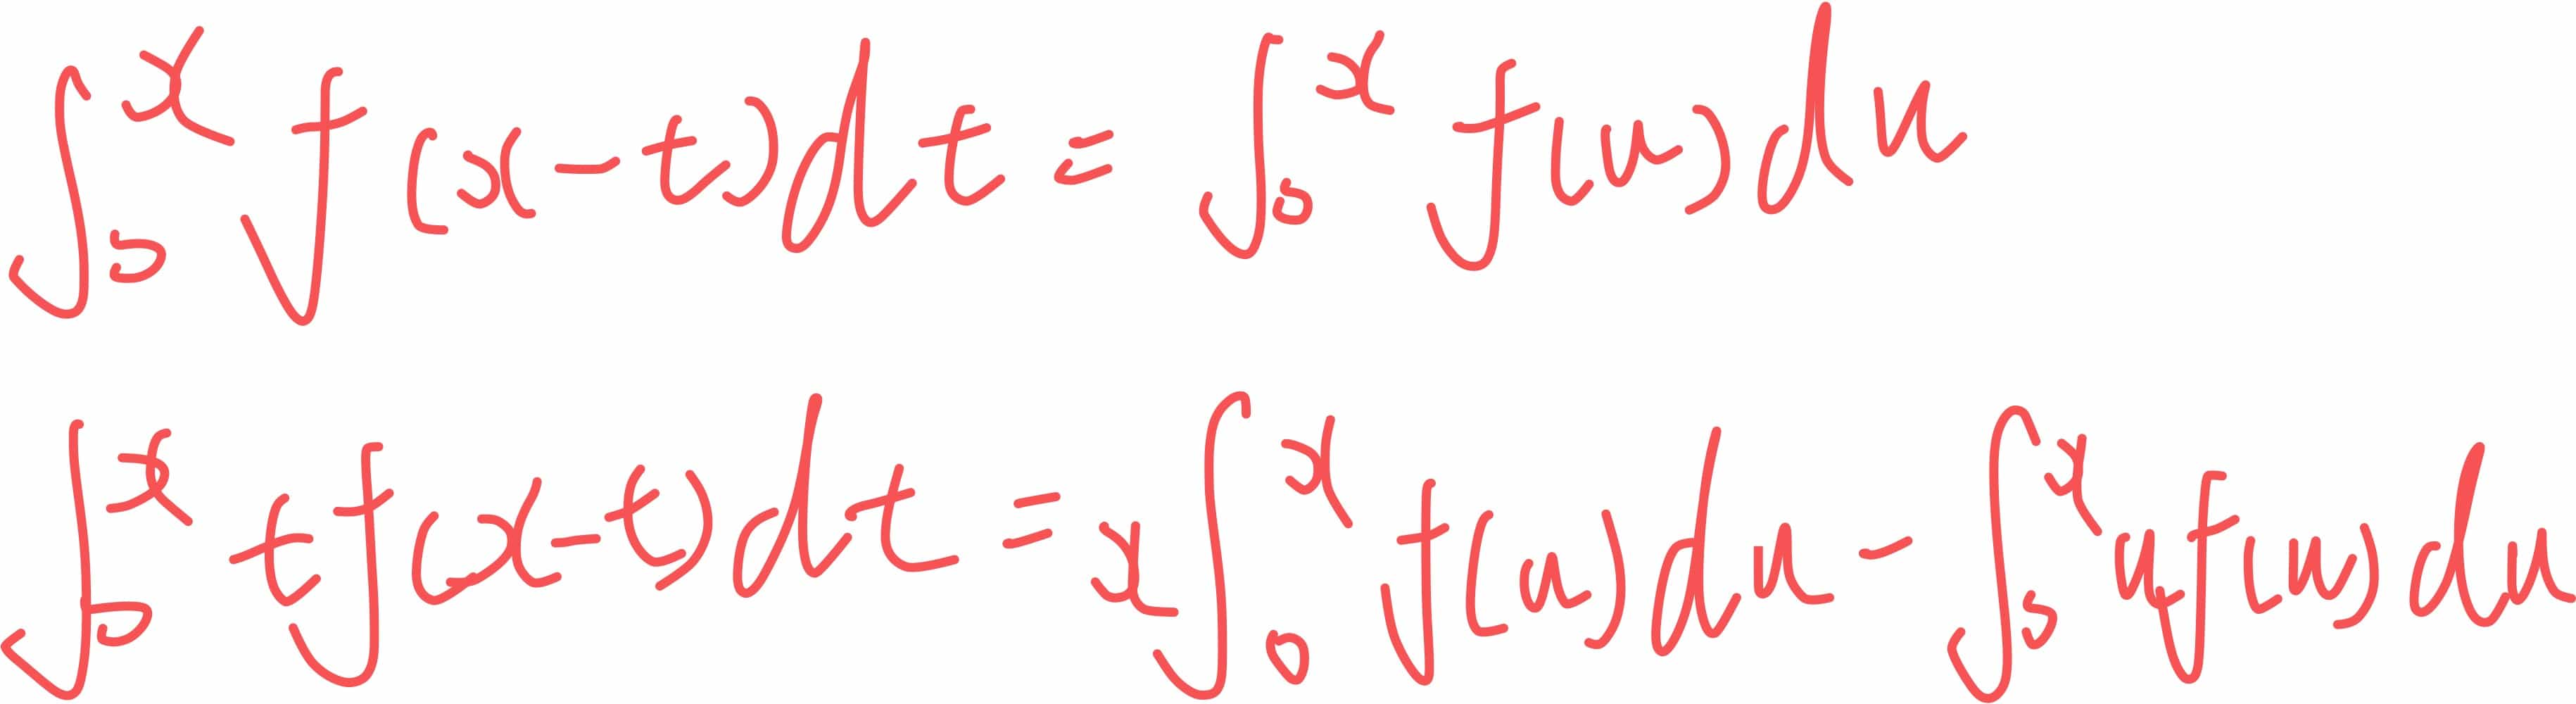 ∫₀ˣ f(x-t)dt = ∫₀ˣ f(u)du
∫₀ˣ tf(x-t)dt = x∫₀ˣ f(u)du - ∫₀ˣ uf(u)du